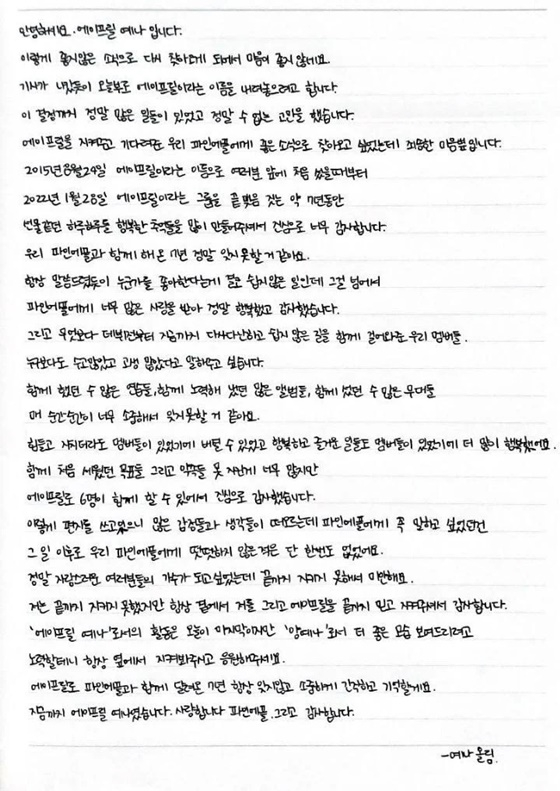 안녕하세요. 에이프릴 예나 입니다.
이렇게 좋지않은 소식으로 다시 찾아오게 되어서 마음이 좋지 않네요.
기사가 나갔듯이 오늘부로 에이프릴이라는 이름을 내려놓으려고 합니다.
이 결정까지 정말 많은 일들이 있었고 정말 수 없는 고민을 했습니다.
에이프릴을 지켜주고 기다려준 우리 파인에플에게 좋은 소식으로 찾아오고 싶었는데 죄송한 마음뿐입니다.
2015년 8월 24일 에이프릴이라는 이름으로 여러분 앞에 처음 섰을때부터
2022년 1월 28일 에이프릴이라는 그룹을 끝 맺음 짓는 약 7년동안
선물같던 하루하루를 행복한 추억들을 많이 만들어주셔서 진심으로 너무 감사합니다.
우리 파인에플과 함께 해온 7년 정말 잊지 못할 거 같아요.
항상 말씀드렸듯이 누군가를 좋아한다는게 쉽지않은 일인데 그걸 넘어서
파인에플에게 너무 많은 사랑을 받아 정말 행복했고 감사했습니다.
그리고 무엇보다 데뷔전부터 지금까지 다사다난하고 쉽지 않은 길을 함께 걸어와준 우리 멤버들.
누구보다도 수고많았고 고생 많았다고 말하고 싶습니다.
함께 했던 수 많은 연습들, 함께 노력해 냈던 많은 앨범들, 함께 섰던 수 많은 무대들
매 순간순간이 너무 소중해서 잊지못할 거 같아요.
힘들고 지치더라도 멤버들이 있었기에 버틸 수 있었고 행복하고 즐거운 일들도 멤버들이 있었기에 더 많이 행복했어요.
함께 처음 세웠던 목표들 그리고 약속들 못 지킨게 너무 많지만
에이프릴로 6명이 함께 할 수 있어서 진심으로 감사했습니다.
이렇게 편지를 쓰고있으니 많은 감정들과 생각들이 떠오르는데 파인에플에게 꼭 말하고 싶었던건
그 일 이후로 우리 파인에플에게 떳떳하지 않은적은 단 한번도 없었어요.
정말 자랑스러운 여러분들의 가수가 되고싶었는데 끝까지 지키지 못해서 미안해요.
저는 끝까지 지키지 못했지만 항상 곁에서 저를 그리고 에이프릴을 끝까지 믿고 지켜주셔서 감사합니다.
'에이프릴 예나'로서의 활동은 오늘이 마지막이지만 '양예나'로서 더 좋은 모습 보여드리려고
노력할테니 항상 옆에서 지켜봐주시고 응원해주세요.
에이프릴로 파인에플과 함께 달려온 7년 항상 잊지않고 소중하게 간직하고 기억할게요.
지금까지 에이프릴 예나였습니다. 사랑합니다 파인에플. 그리고 감사합니다.
-예나 올림.